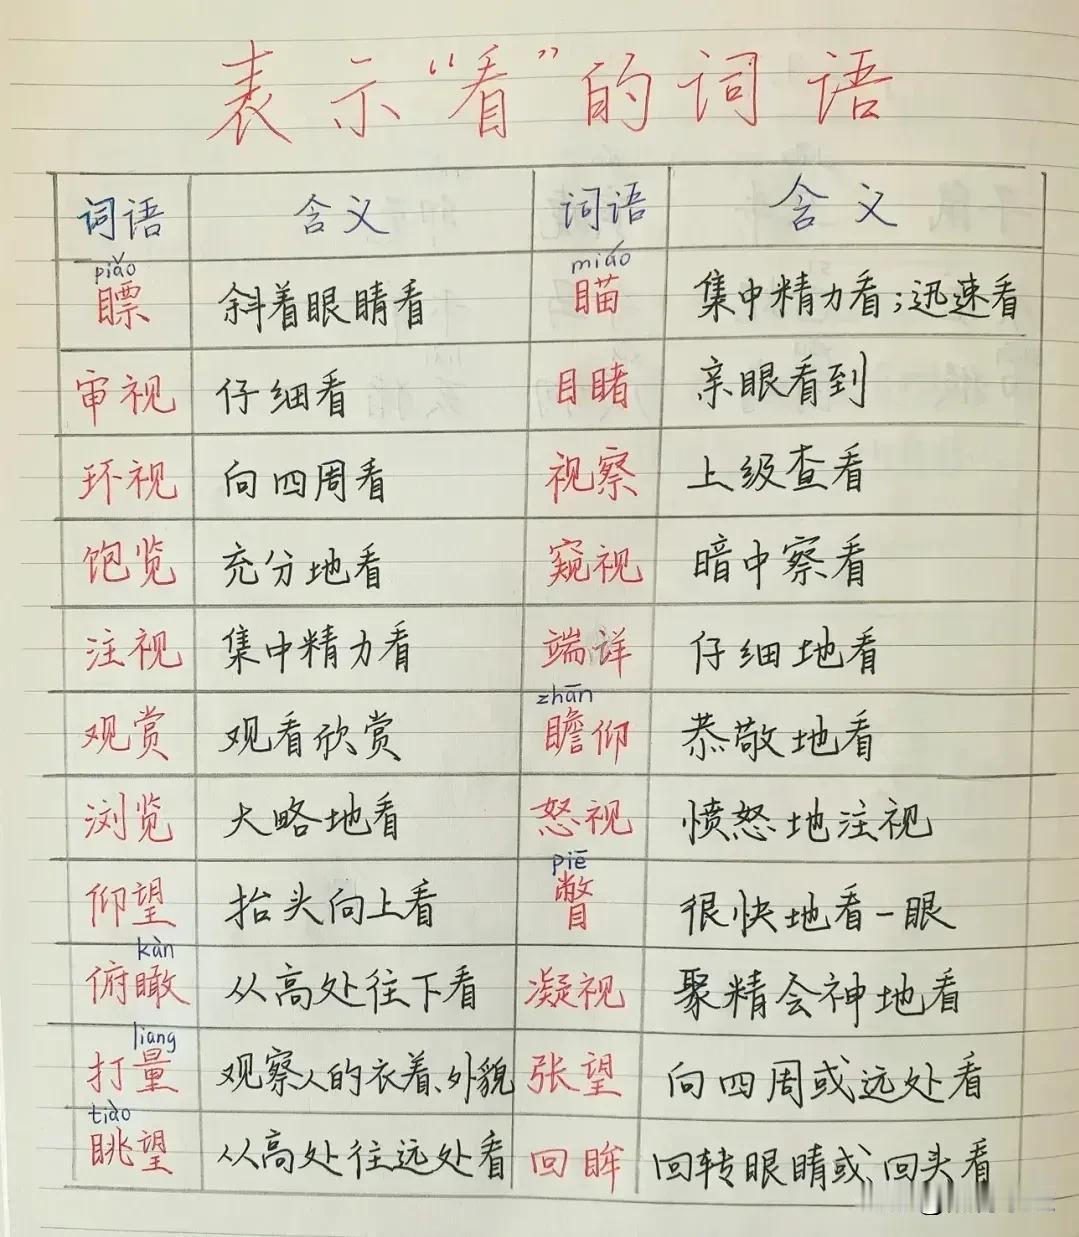 表示“看”的词语
词语 含义 词语 含义
piǎo miáo
瞟 斜着眼睛看 瞄 集中精力看；迅速看
审视 仔细看 目睹 亲眼看到
环视 向四周看 视察 上级查看
饱览 充分地看 窥视 暗中察看
注视 集中精力看 端详 仔细地看
zhān
观赏 观看欣赏 瞻仰 恭敬地看
浏览 大略地看 怒视 愤怒地注视
piē
仰望 抬头向上看 瞥 很快地看一眼
kàn
俯瞰 从高处往下看 凝视 聚精会神地看
liang
打量 观察人的衣着、外貌 张望 向四周或远处看
tiào
眺望 从高处往远处看 回眸 回转眼睛或回头看